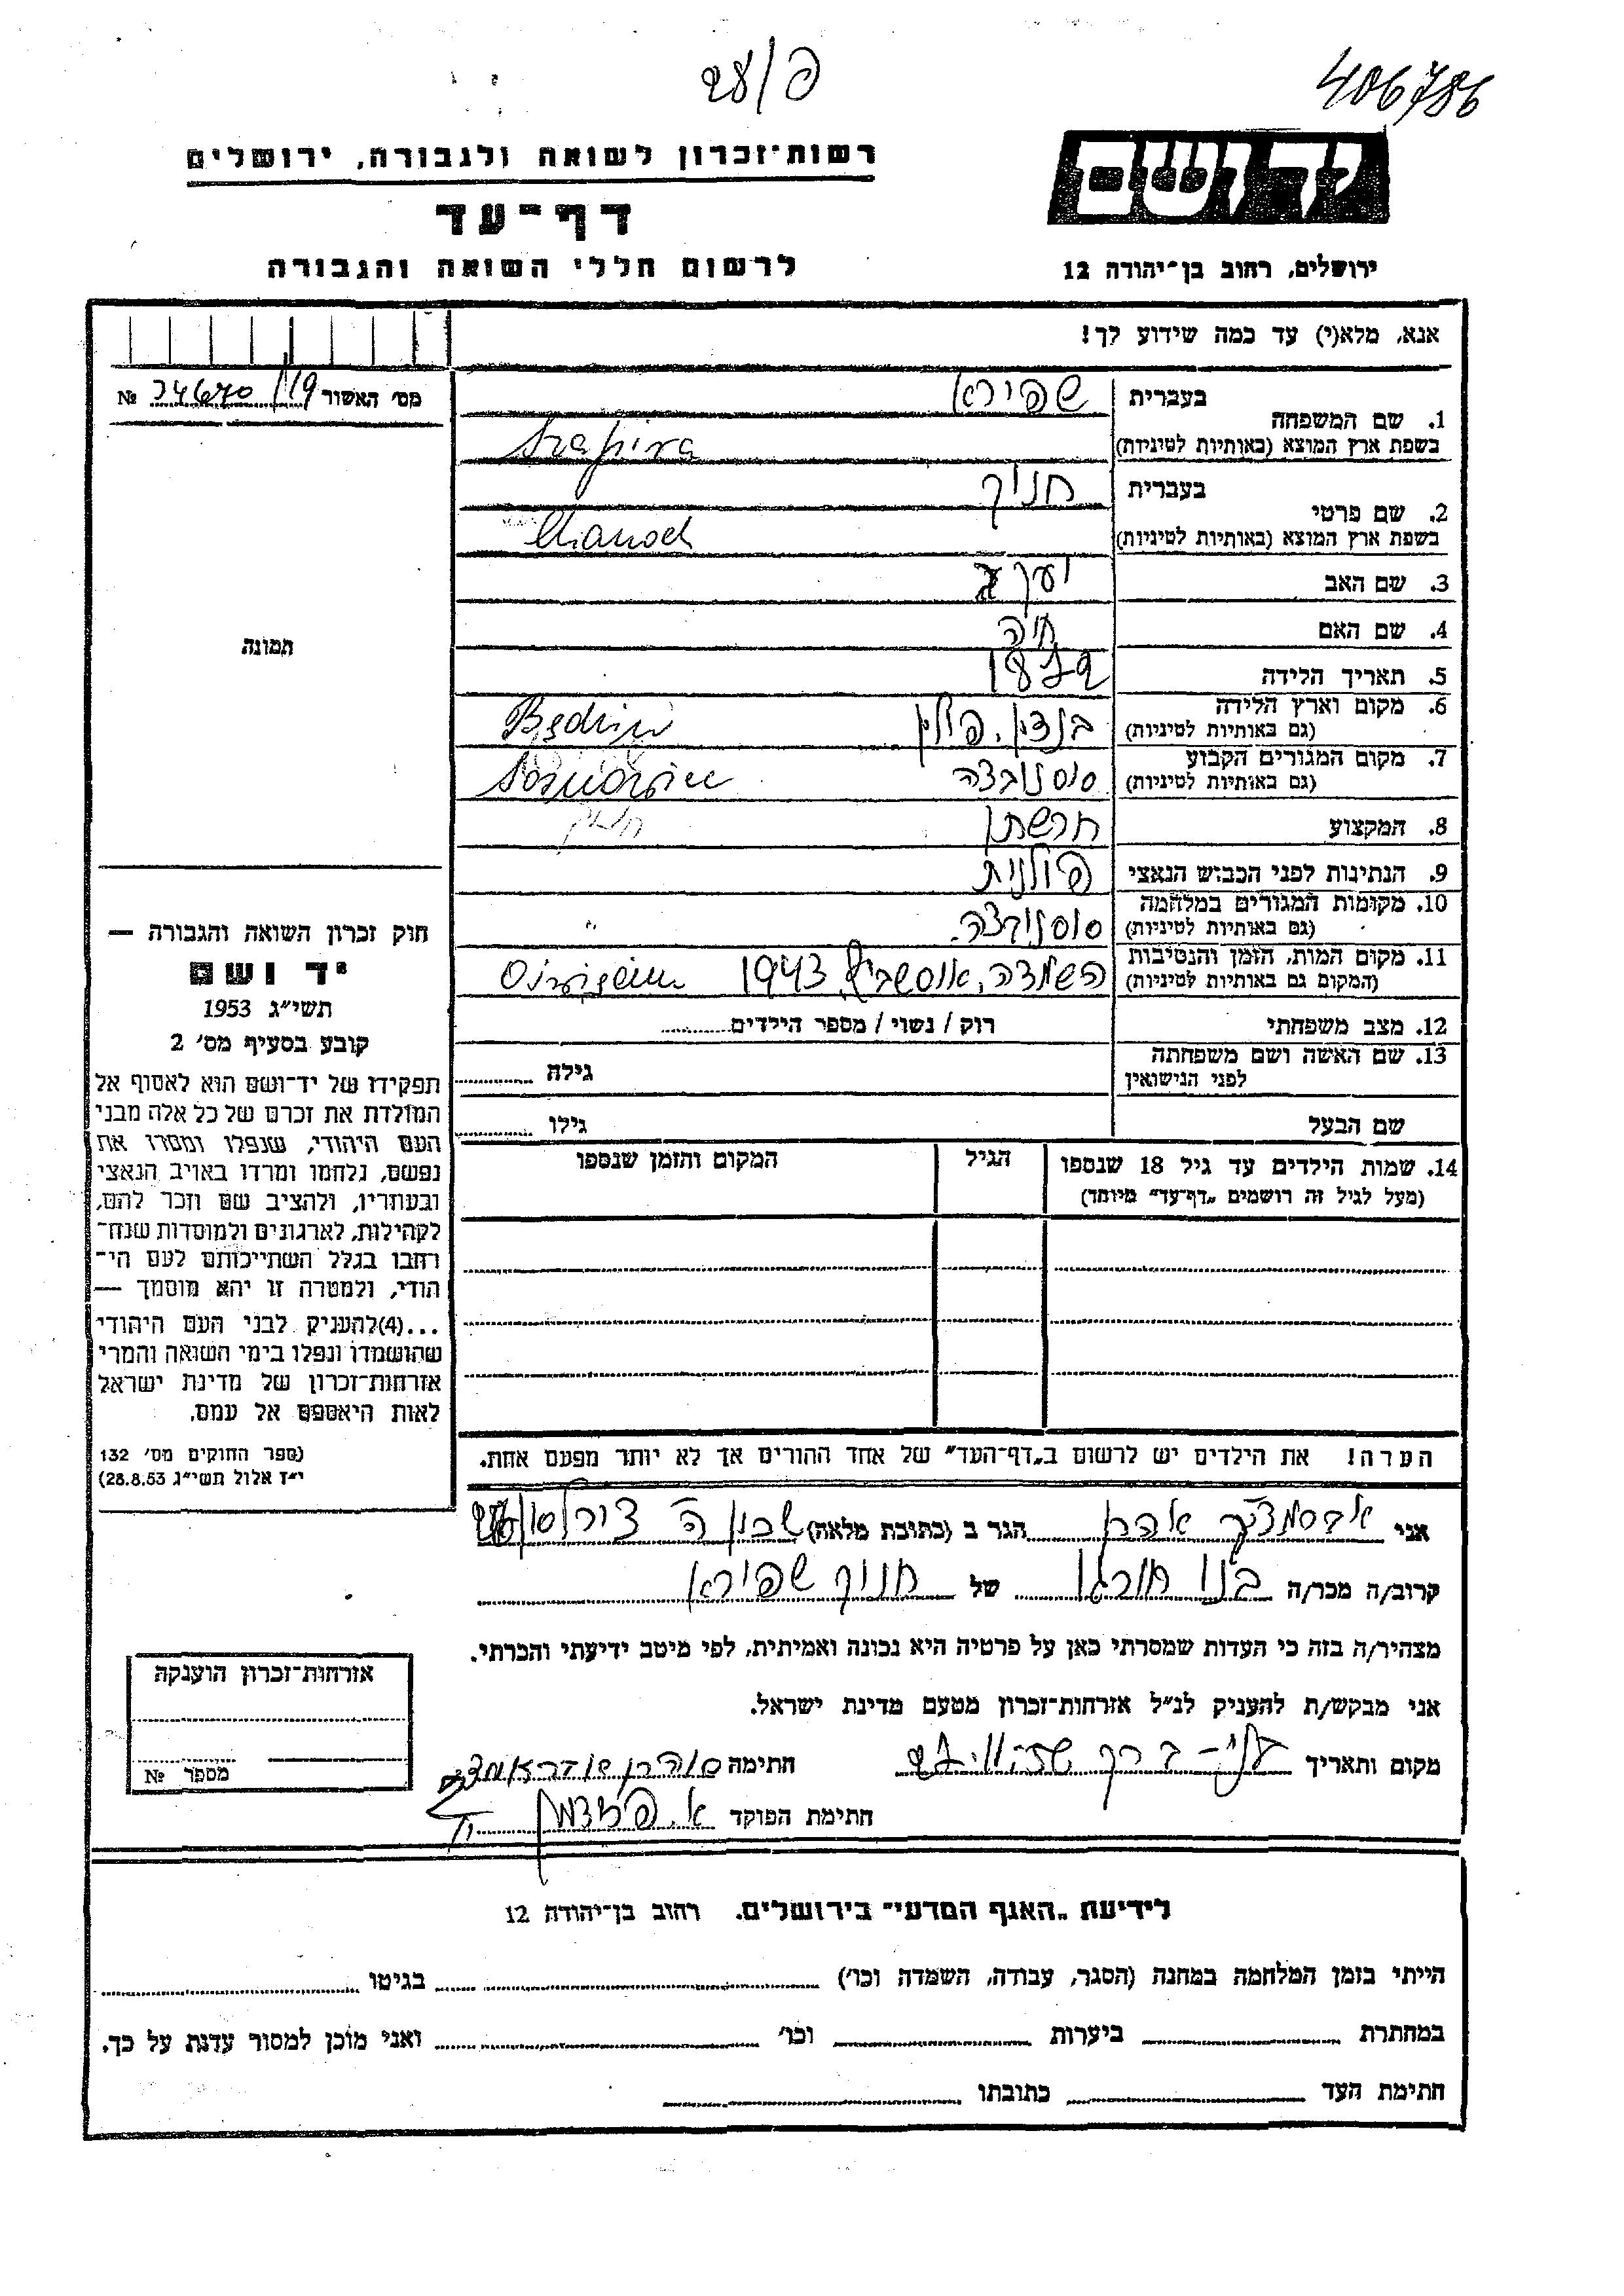 פ/28
406786
יד ושם
רשות־זכרון לשואה ולגבורה, ירושלים
דף־עד
לרשום חללי השואה והגבורה
ירושלים, רחוב בן־יהודה 12
אנא, מלא(י) עד כמה שידוע לך!
מס׳ האשור №
1. שם המשפחה
בעברית שפירא
בשפת ארץ המוצא (באותיות לטיניות) Szapira
2. שם פרטי
בעברית חנוך
בשפת ארץ המוצא (באותיות לטיניות) Chanoch
3. שם האב יעקב
4. שם האם חיה
5. תאריך הלידה
6. מקום וארץ הלידה (גם באותיות לטיניות) בנדין, פולין Będzin
7. מקום המגורים הקבוע (גם באותיות לטיניות) סוסנוביצה Sosnowiec
8. המקצוע חרשתן
9. הנתינות לפני הכבוש הנאצי פולנית
10. מקומות המגורים במלחמה (גם באותיות לטיניות) סוסנוביצה. "
11. מקום המות, הזמן והנסיבות (המקום גם באותיות לטיניות) השמדה, אוסשביץ, 1943 Oświęcim
12. מצב משפחתי רוק / נשוי / מספר הילדים
13. שם האשה ושם משפחתה לפני הנישואין גילה
שם הבעל גילו
14. שמות הילדים עד גיל 18 שנספו (מעל לגיל זה רושמים „דף־עד״ מיוחד)
הגיל
המקום והזמן שנספו
הערה! את הילדים יש לרשום ב„דף־העד״ של אחד ההורים אך לא יותר מפעם אחת.
תמונה
חוק זכרון השואה והגבורה —
יד ושם
תשי״ג 1953
קובע בסעיף מס׳ 2
תפקידו של יד־ושם הוא לאסוף אל
המולדת את זכרם של כל אלה מבני
העם היהודי, שנפלו ומסרו את
נפשם, נלחמו ומרדו באויב הנאצי
ובעוזריו, ולהציב שם וזכר להם,
לקהילות, לארגונים ולמוסדות שנח־
רחבו בגלל השתייכותם לעם הי־
הודי, ולמטרה זו יהא מוסמך —
...(4)להעניק לבני העם היהודי
שהושמדו ונפלו בימי השואה והמרי
אזרחות־זכרון של מדינת ישראל
לאות היאספם אל עמם.
(ספר החוקים מס׳ 132
י״ז אלול תשי״ג 28.8.53)
אני אהרן הגר ב (כתובת מלאה) שכון ה
קרוב/ה מכר/ה של חנוך שפירא
מצהיר/ה בזה כי העדות שמסרתי כאן על פרטיה היא נכונה ואמיתית, לפי מיטב ידיעתי והכרתי.
אני מבקש/ת להעניק לנ״ל אזרחות־זכרון מטעם מדינת ישראל.
מקום ותאריך בני־ברק חתימה
חתימת הפוקד
אזרחות־זכרון הוענקה
מספר №
לידיעת „האגף המדעי״ בירושלים. רחוב בן־יהודה 12
הייתי בזמן המלחמה במחנה (הסגר, עבודה, השמדה וכו׳) בגיטו
במחתרת ביערות וכו׳ ואני מוכן למסור עדות על כך.
חתימת העד כתובתו